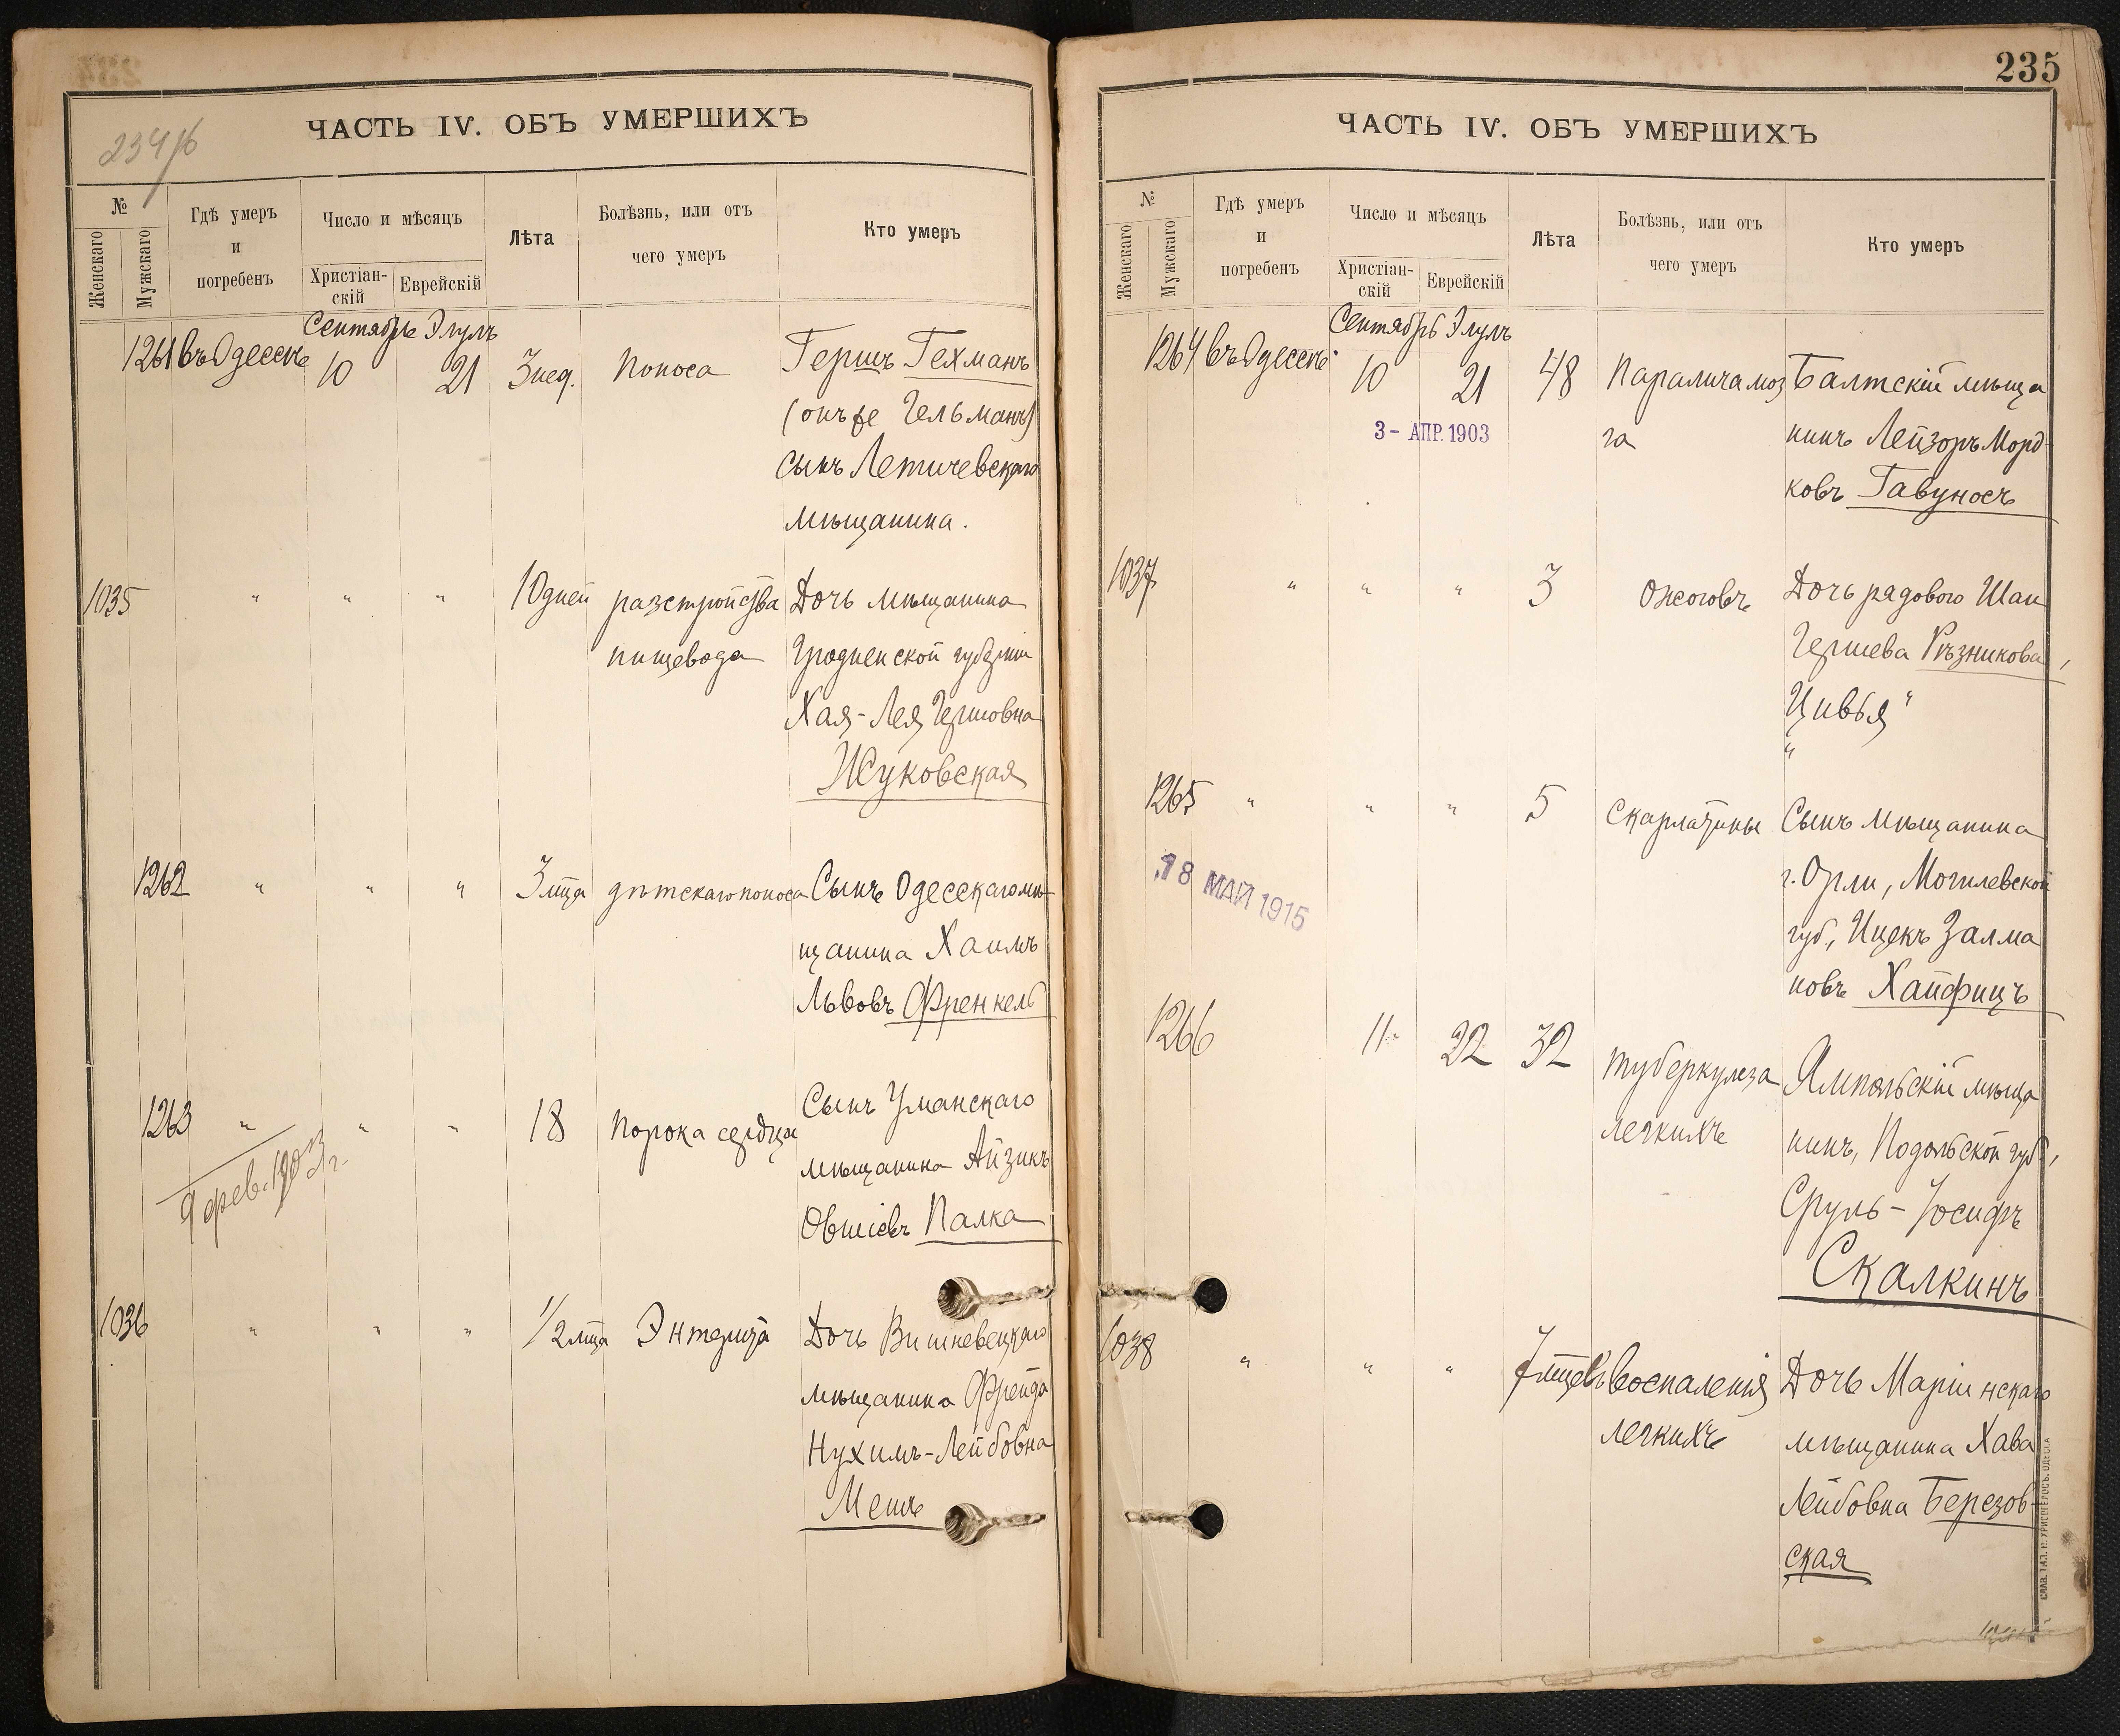 234/б
ЧАСТЬ IV. ОБЪ УМЕРШИХЪ
№
Женскаго
Мужскаго
Гдѣ умеръ
и
погребенъ
Число и мѣсяцъ
Христіан-
скій
Еврейскій
Лѣта
Болѣзнь, или отъ
чего умеръ
Кто умеръ
Сентябрь Элулъ
1261 въ Одессѣ 10 21 3 нед. Поноса Гершъ Гехманъ
(онъ же Гельманъ)
сынъ Летичевскаго
мѣщанина.
1035 " " " 10 дней разстройства Дочь мѣщанина
пищевода Гродненской губерніи
Хая-Лея Гершовна
Жуковская
1262 " " " 3 мца дѣтскаго поноса Сынъ Одесскаго мѣ-
щанина Хаимъ
Львовъ Френкель
1263 " " " 18 Порока сердца Сынъ Уманскаго
мѣщанина Айзикъ
Овшіевъ Палка
9 фев. 1903 г.
1036 " " " 1/2 мца Энтерита Дочь Вишневецкаго
мѣщанина Фрейда
Нухимъ-Лейбовна
Мешъ
235
ЧАСТЬ IV. ОБЪ УМЕРШИХЪ
№
Женскаго
Мужскаго
Гдѣ умеръ
и
погребенъ
Число и мѣсяцъ
Христіан-
скій
Еврейскій
Лѣта
Болѣзнь, или отъ
чего умеръ
Кто умеръ
Сентябрь Элулъ
1264 въ Одессѣ 10 21 48 Паралича моз Балтскій мѣща
3 - АПР. 1903 га нинъ Лейзоръ Морд-
ковъ Гавуносъ
1037 " " " 3 Ожоговъ Дочь рядового Шаи
Гершева Рѣзникова,
Цивья "
"
1265 " " " 5 Скарлатины Сынъ мѣщанина
г. Орли, Могилевской
18 МАЙ 1915
губ., Ицекъ Залма
новъ Хайфицъ
1266 11 22 32 Туберкулеза Ямпольскій мѣща
легкихъ нинъ, Подольской губ.,
Сруль-Іосифъ
Скалкинъ
1038 " " " 7 мцевъ Воспаленія Дочь Маріинскаго
легкихъ мѣщанина Хава
Лейбовна Березов-
ская
СЛАВ. ТИП. Н. ХРИСОГЕЛОСЪ. ОДЕССА